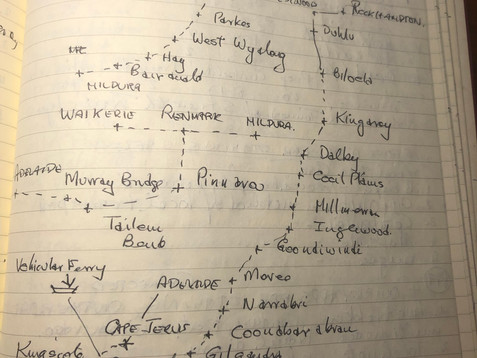 ROCKHAMPTON.
Parkes
Dululu
West Wyalog
Hay
Biloela
Bairanald
MILDURA
WAIKERIE RENMARK MILDURA.
Kingaroy
Dalby
ADELAIDE
Murray Bridge Pinnaroo
Cecil Plains
Tailem
Bend
Millmeran
Inglewood
Goondiwindi
Vehicular Ferry
ADELAIDE
Moree
Narrabri
CAPE JERVIS
Coonabarabran
Kingscote
Gilgandra